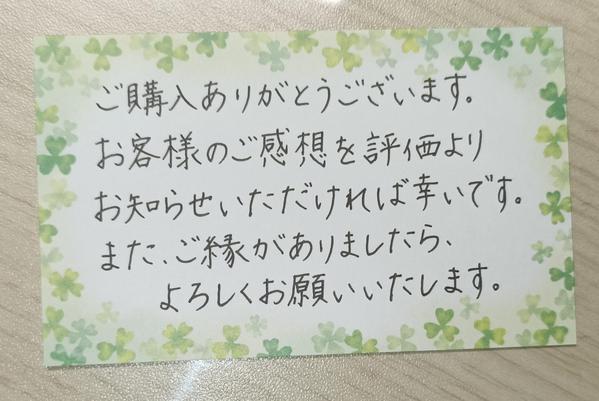 ご購入ありがとうございます。
お客様のご感想を評価より
お知らせいただければ幸いです。
また、ご縁がありましたら、
よろしくお願いいたします。